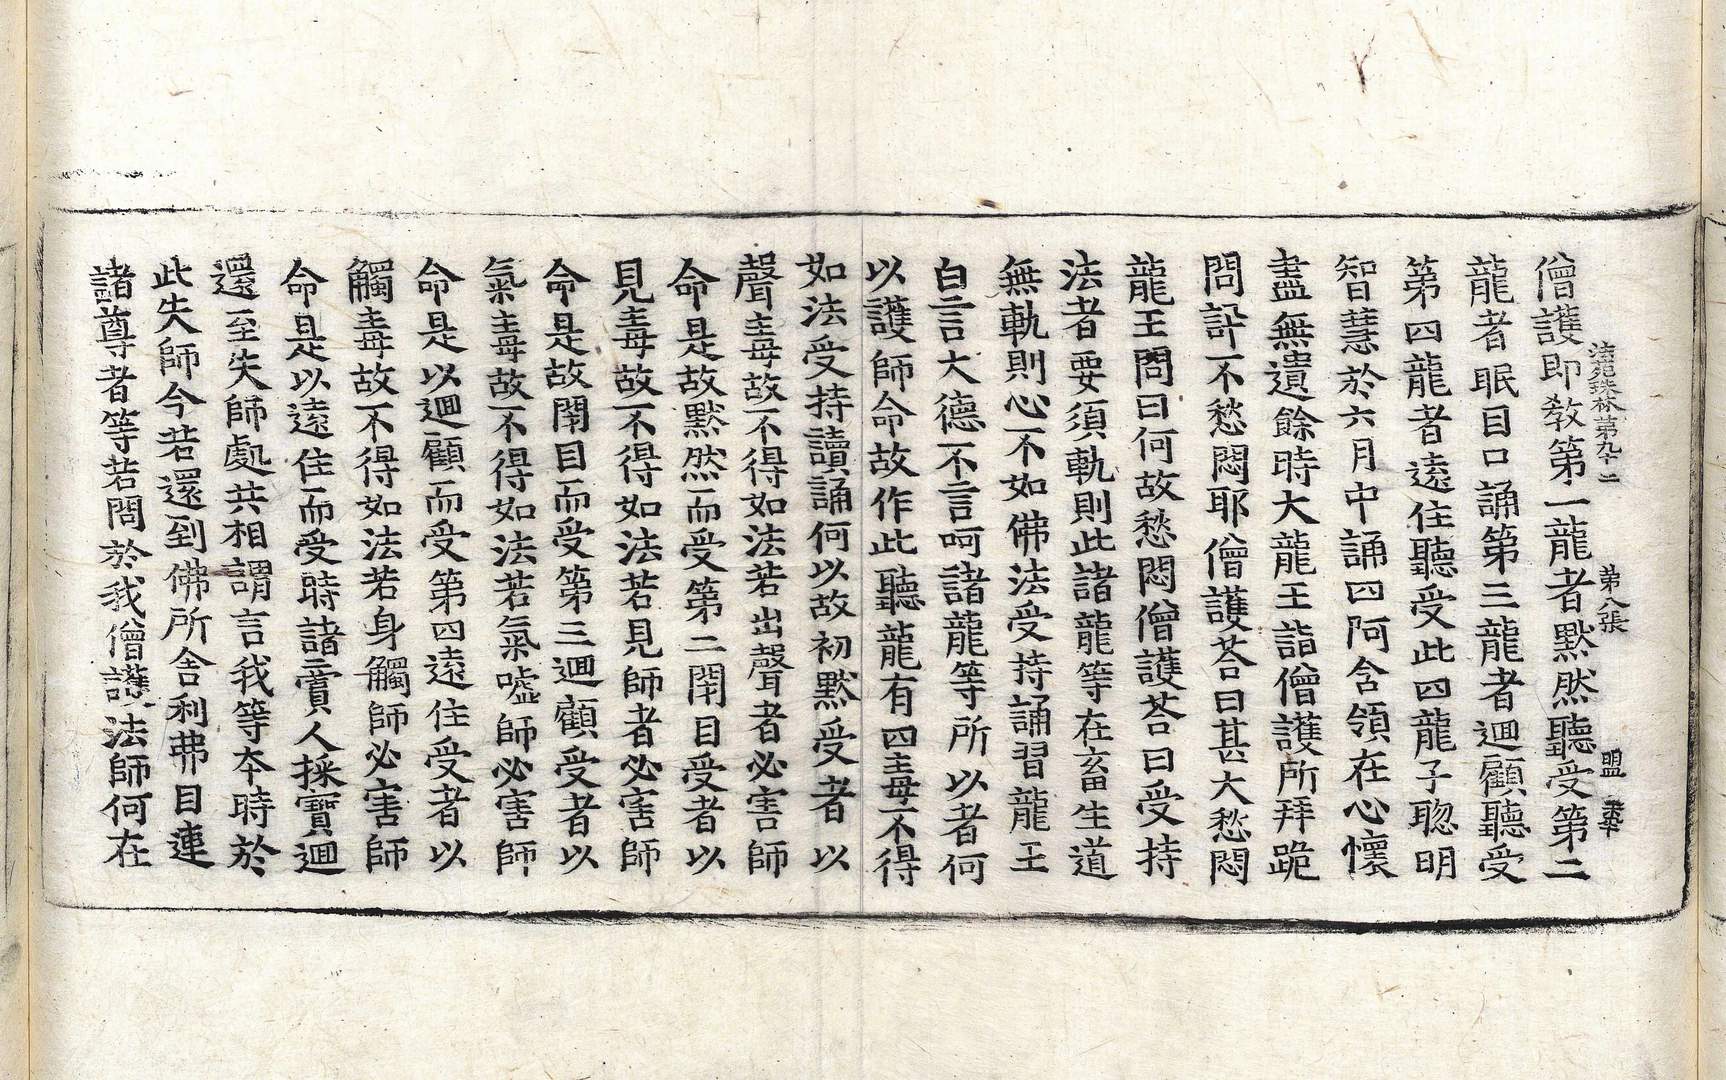 法苑珠林第九十二 第八張 盟
僧護即教第一龍者默然聽受第二
龍者眠目口誦第三龍者迴顧聽受
第四龍者遠住聽受此四龍子聡明
智慧於六月中誦四阿含領在心懷
盡無遺餘時大龍王詣僧護所拜跪
問訊不愁悶耶僧護荅曰甚大愁悶
龍王問曰何故愁悶僧護荅曰受持
法者要須軌則此諸龍等在畜生道
無軌則心不如佛法受持誦習龍王
白言大德不言呵諸龍等所以者何
以護師命故作此聽龍有四毒不得
如法受持讀誦何以故初默受者以
聲毒故不得如法若出聲者必害師
命是故默然而受第二閇目受者以
見毒故不得如法若見師者必害師
命是故閇目而受第三迴顧受者以
氣毒故不得如法若氣噓師必害師
命是以迴顧而受第四遠住受者以
觸毒故不得如法若身觸師必害師
命是以遠住而受時諸賣人採寶迴
還至失師處共相謂言我等本時於
此失師今若還到佛所舍利弗目連
諸尊者等若問於我僧護法師何在